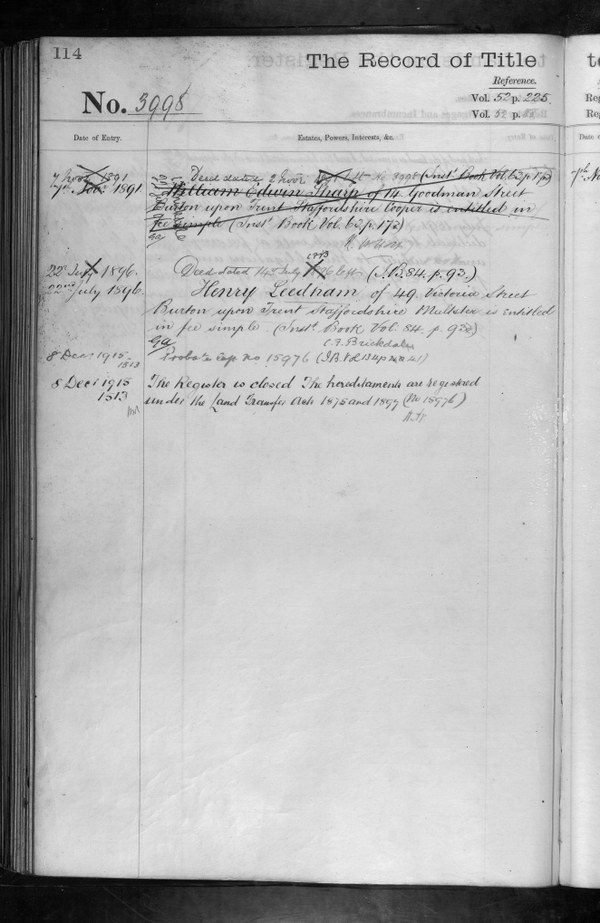 114
The Record of Title
Reference.
No. 3998
Vol. 52 p. 225
Vol. 52 p.
Date of Entry.
Estates, Powers, Interests, &c.
7 Novr 1891 Deed dated 2 Novr No 3998 (Inst. Book Vol. 63 p. 173)
7th Novr 1891 William Edwin Sharp of 14 Goodman Street
Burton upon Trent Staffordshire Cooper is entitled in
fee simple (Inst. Book Vol. 63 p. 173)
22 July 1896. Deed dated 14th July 1896 (I.B. 84. p. 93.)
22nd July 1896. Henry Leedham of 49. Victoria Street
Burton upon Trent Staffordshire Maltster is entitled
in fee simple. (Inst. Book Vol. 84. p. 93)
C.F. Brickdale
8 Decr 1915 Probate no 15976
1513
8 Decr 1915 The Register is closed The hereditaments are registered
1513 under the Land Transfer Acts 1875 and 1897 (No 15976)